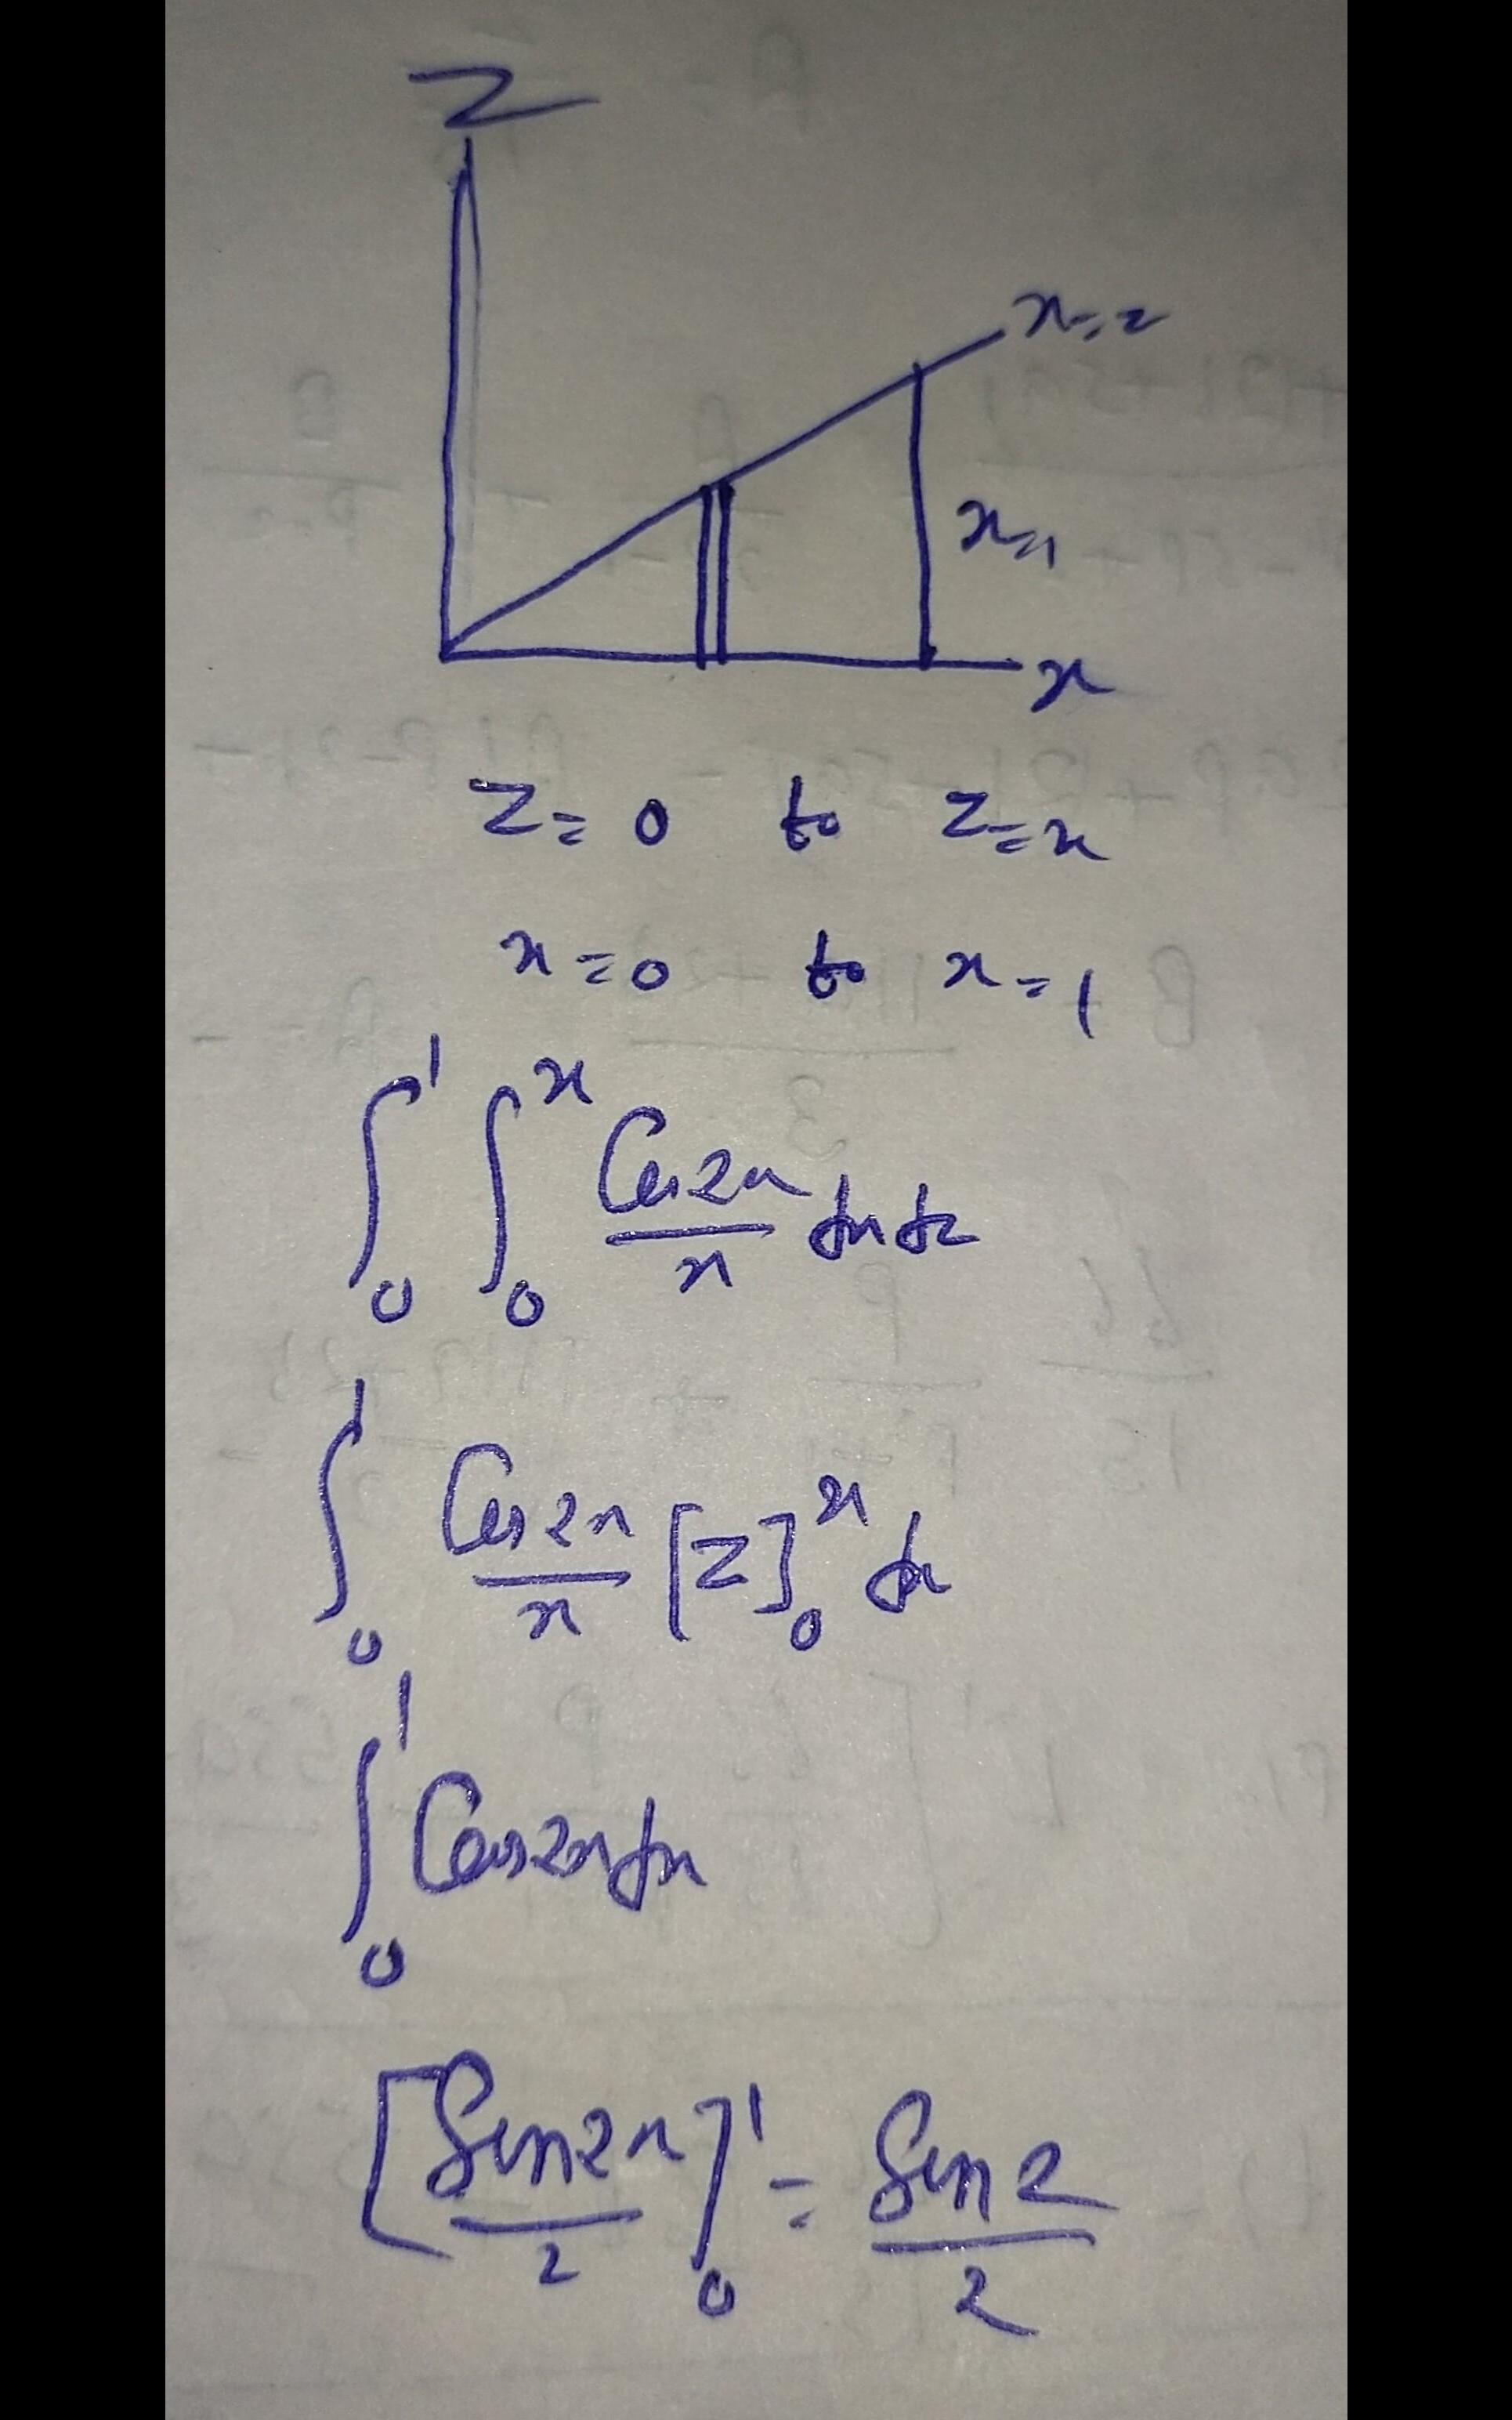 Z
x=z
x=1
x
Z=0 to Z=x
x=0 to x=1
∫₀¹ ∫₀ˣ Cos2x/x dx dz
∫₀¹ Cos2x/x [Z]₀ˣ dx
∫₀¹ Cos2x dx
[Sin2x/2]₀¹ = Sin2/2